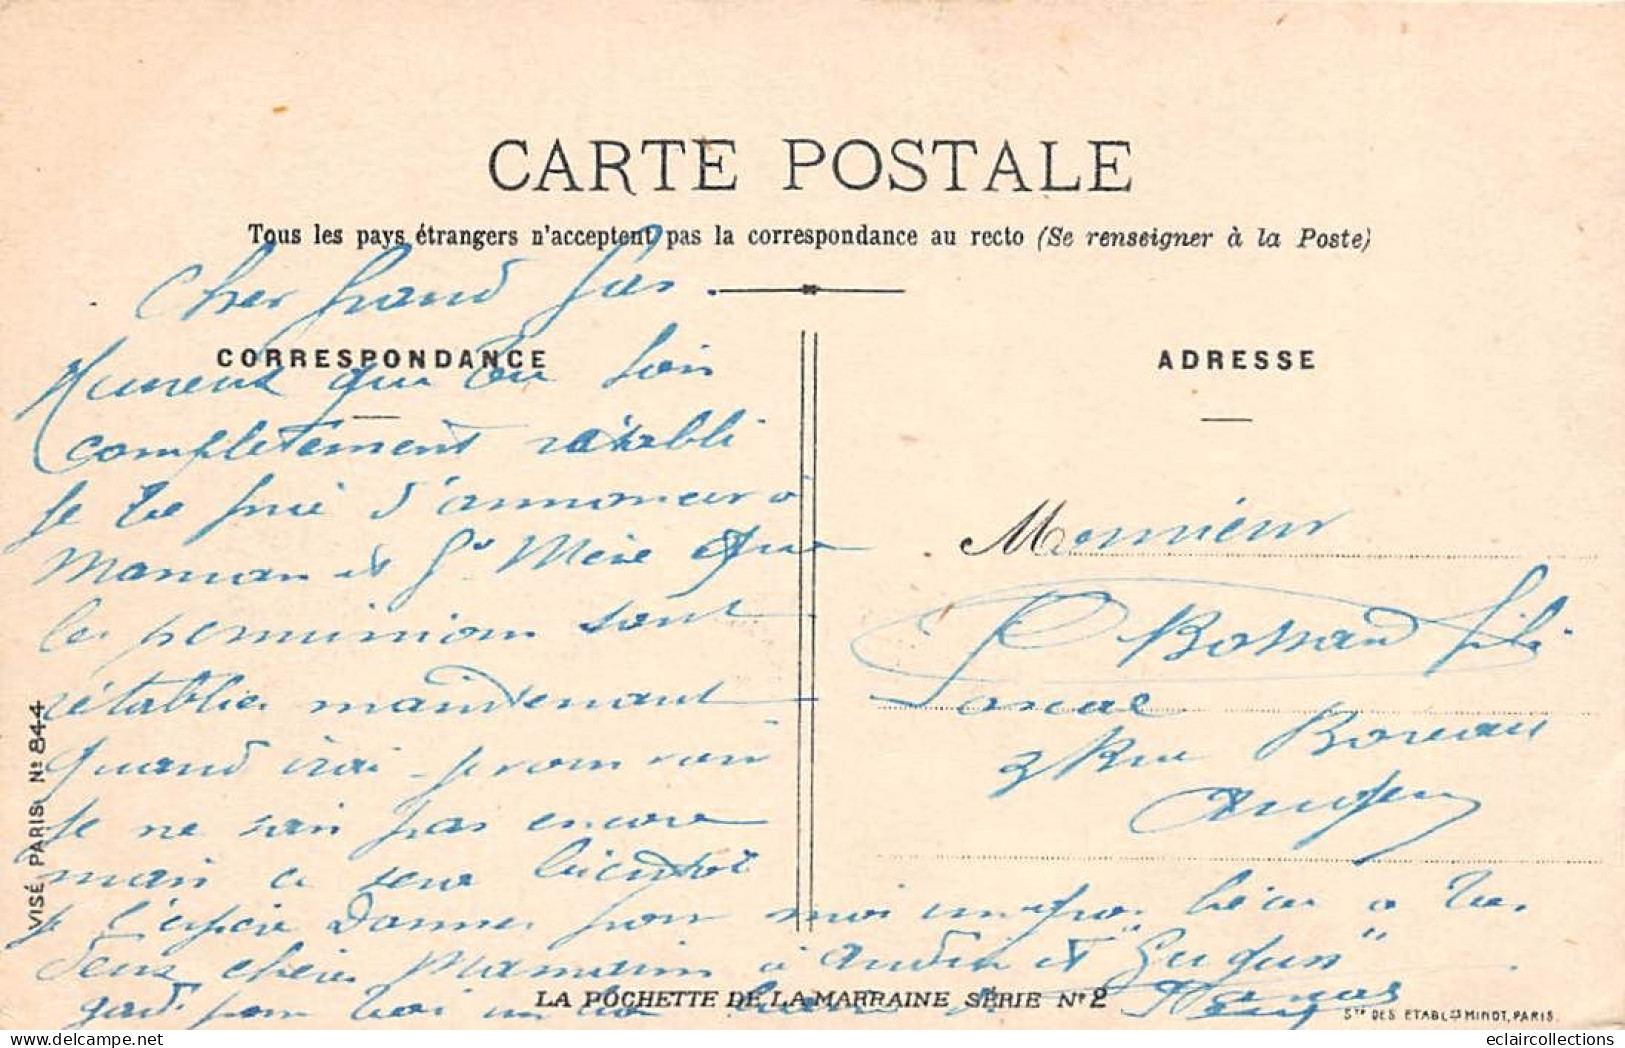 CARTE POSTALE
Tous les pays étrangers n'acceptent pas la correspondance au recto (Se renseigner à la Poste)
Cher grand gas.
CORRESPONDANCE
ADRESSE
Heureux que tu sois
complètement rétabli
Je te prie d'annoncer à
Maman et Gd Mère que
les permissions sont
rétablies maintenant
Quand irai-je en
je ne sais pas encore
mais ce sera bientôt
je l'espère Donnes pour moi un gros bécot à tes
deux chères Mamans à et "
garde pour toi un bon
Monsieur
P Bossard fils
Pascal
3 Rue Boreau
Angers
VISÉ PARIS No 844
LA POCHETTE DE LA MARRAINE SÉRIE No 2
Sté DES ETABLts MINOT, PARIS.
eclaircollections